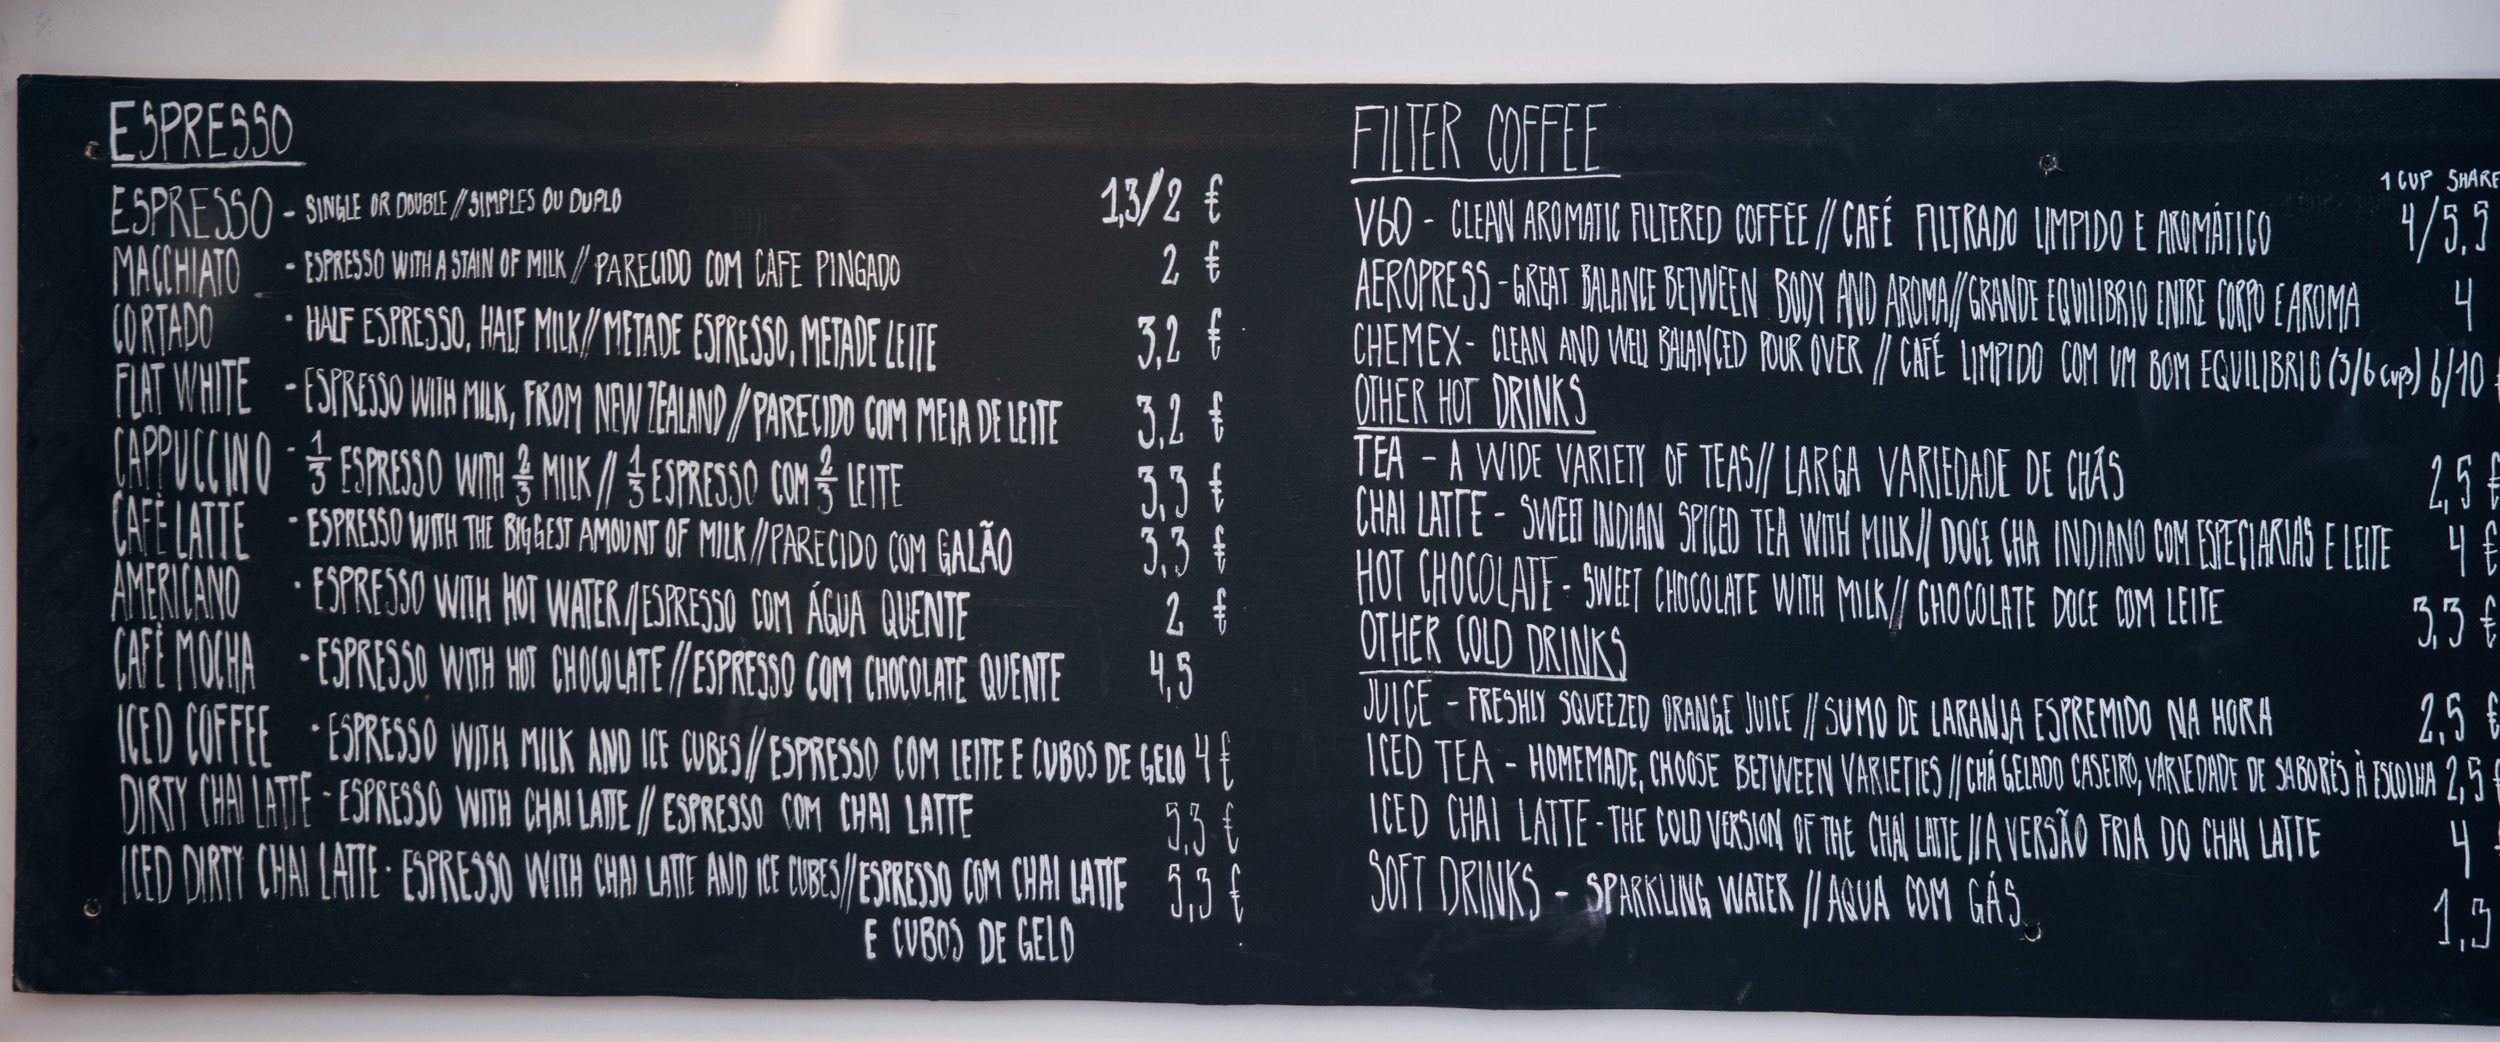 ESPRESSO
ESPRESSO - SINGLE OR DOUBLE // SIMPLES OU DUPLO 1,3/2 €
MACCHIATO - ESPRESSO WITH A STAIN OF MILK // PARECIDO COM CAFE PINGADO 2 €
CORTADO - HALF ESPRESSO, HALF MILK // METADE ESPRESSO, METADE LEITE 3,2 €
FLAT WHITE - ESPRESSO WITH MILK, FROM NEW ZEALAND // PARECIDO COM MEIA DE LEITE 3,2 €
CAPPUCCINO - 1/3 ESPRESSO WITH 2/3 MILK // 1/3 ESPRESSO COM 2/3 LEITE 3,3 €
CAFÈ LATTE - ESPRESSO WITH THE BIGGEST AMOUNT OF MILK // PARECIDO COM GALÃO 3,3 €
AMERICANO - ESPRESSO WITH HOT WATER // ESPRESSO COM ÁGUA QUENTE 2 €
CAFÈ MOCHA - ESPRESSO WITH HOT CHOCOLATE // ESPRESSO COM CHOCOLATE QUENTE 4,5
ICED COFFEE - ESPRESSO WITH MILK AND ICE CUBES // ESPRESSO COM LEITE E CUBOS DE GELO 4 €
DIRTY CHAI LATTE - ESPRESSO WITH CHAI LATTE // ESPRESSO COM CHAI LATTE 5,3 €
ICED DIRTY CHAI LATTE - ESPRESSO WITH CHAI LATTE AND ICE CUBES // ESPRESSO COM CHAI LATTE 5,3 €
E CUBOS DE GELO
FILTER COFFEE
1 CUP SHARE
V60 - CLEAN AROMATIC FILTERED COFFEE // CAFÉ FILTRADO LIMPIDO E AROMÁTICO 4/5,5
AEROPRESS - GREAT BALANCE BETWEEN BODY AND AROMA // GRANDE EQUILIBRIO ENTRE CORPO E AROMA 4
CHEMEX - CLEAN AND WELL BALANCED POUR OVER // CAFÉ LIMPIDO COM UM BOM EQUILIBRIO (3/6 CUPS) 6/10 €
OTHER HOT DRINKS
TEA - A WIDE VARIETY OF TEAS // LARGA VARIEDADE DE CHÁS 2,5 €
CHAI LATTE - SWEET INDIAN SPICED TEA WITH MILK // DOCE CHA INDIANO COM ESPECIARIAS E LEITE 4 €
HOT CHOCOLATE - SWEET CHOCOLATE WITH MILK // CHOCOLATE DOCE COM LEITE 3,3 €
OTHER COLD DRINKS
JUICE - FRESHLY SQUEEZED ORANGE JUICE // SUMO DE LARANJA ESPREMIDO NA HORA 2,5 €
ICED TEA - HOMEMADE, CHOOSE BETWEEN VARIETIES // CHÁ GELADO CASEIRO, VARIEDADE DE SABORES À ESCOLHA 2,5 €
ICED CHAI LATTE - THE COLD VERSION OF THE CHAI LATTE // A VERSÃO FRIA DO CHAI LATTE 4
SOFT DRINKS - SPARKLING WATER // AQUA COM GÁS 1,3